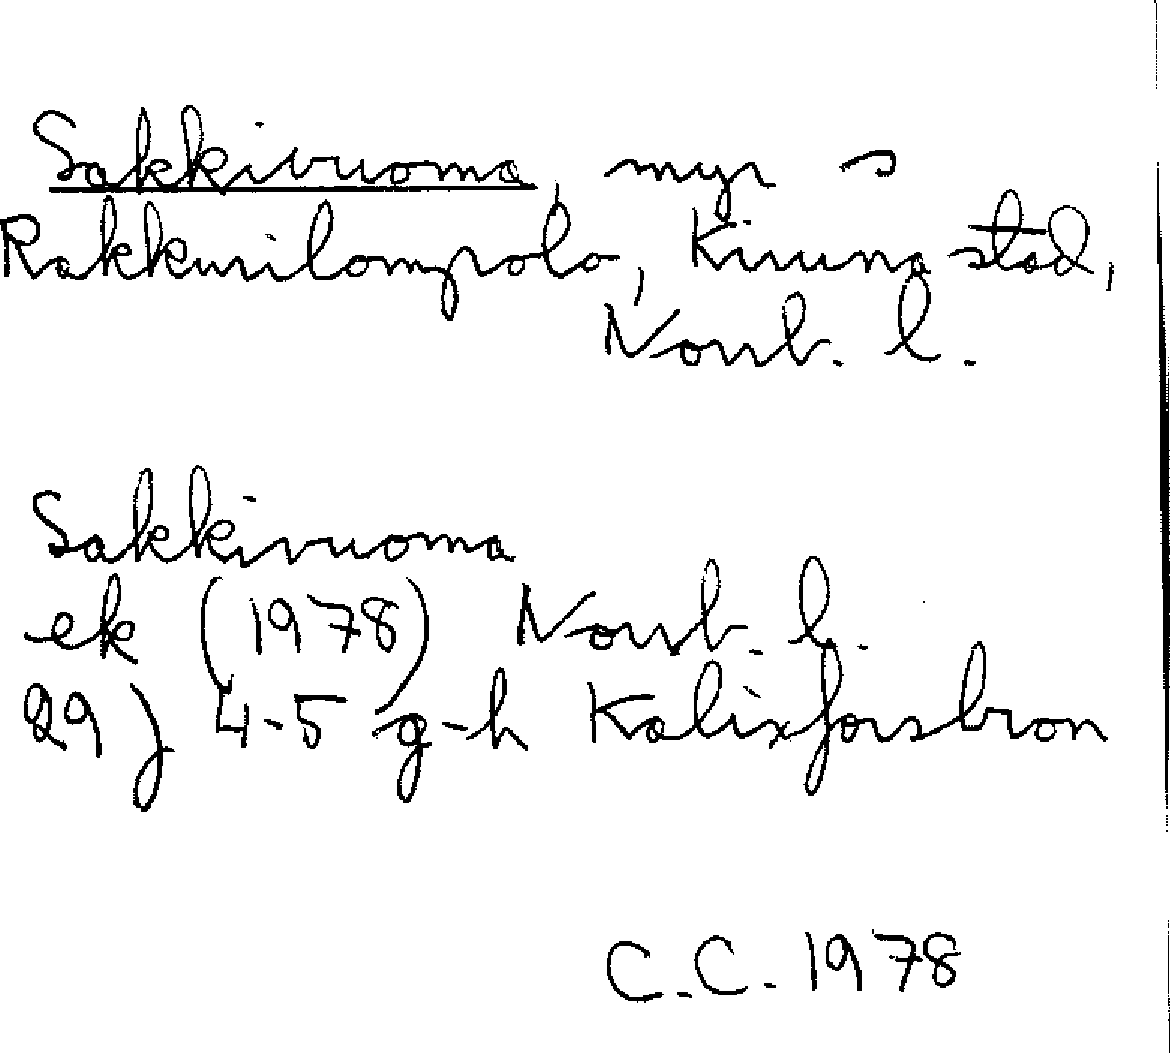 Sakkivuoma, myr s
Rakkurilompolo, Kiruna stad,
Norrb. l.
Sakkivuoma
ek (1978) Norrb. l.
29 J 4-5 g-h Kalixforsbron
C.C. 1978